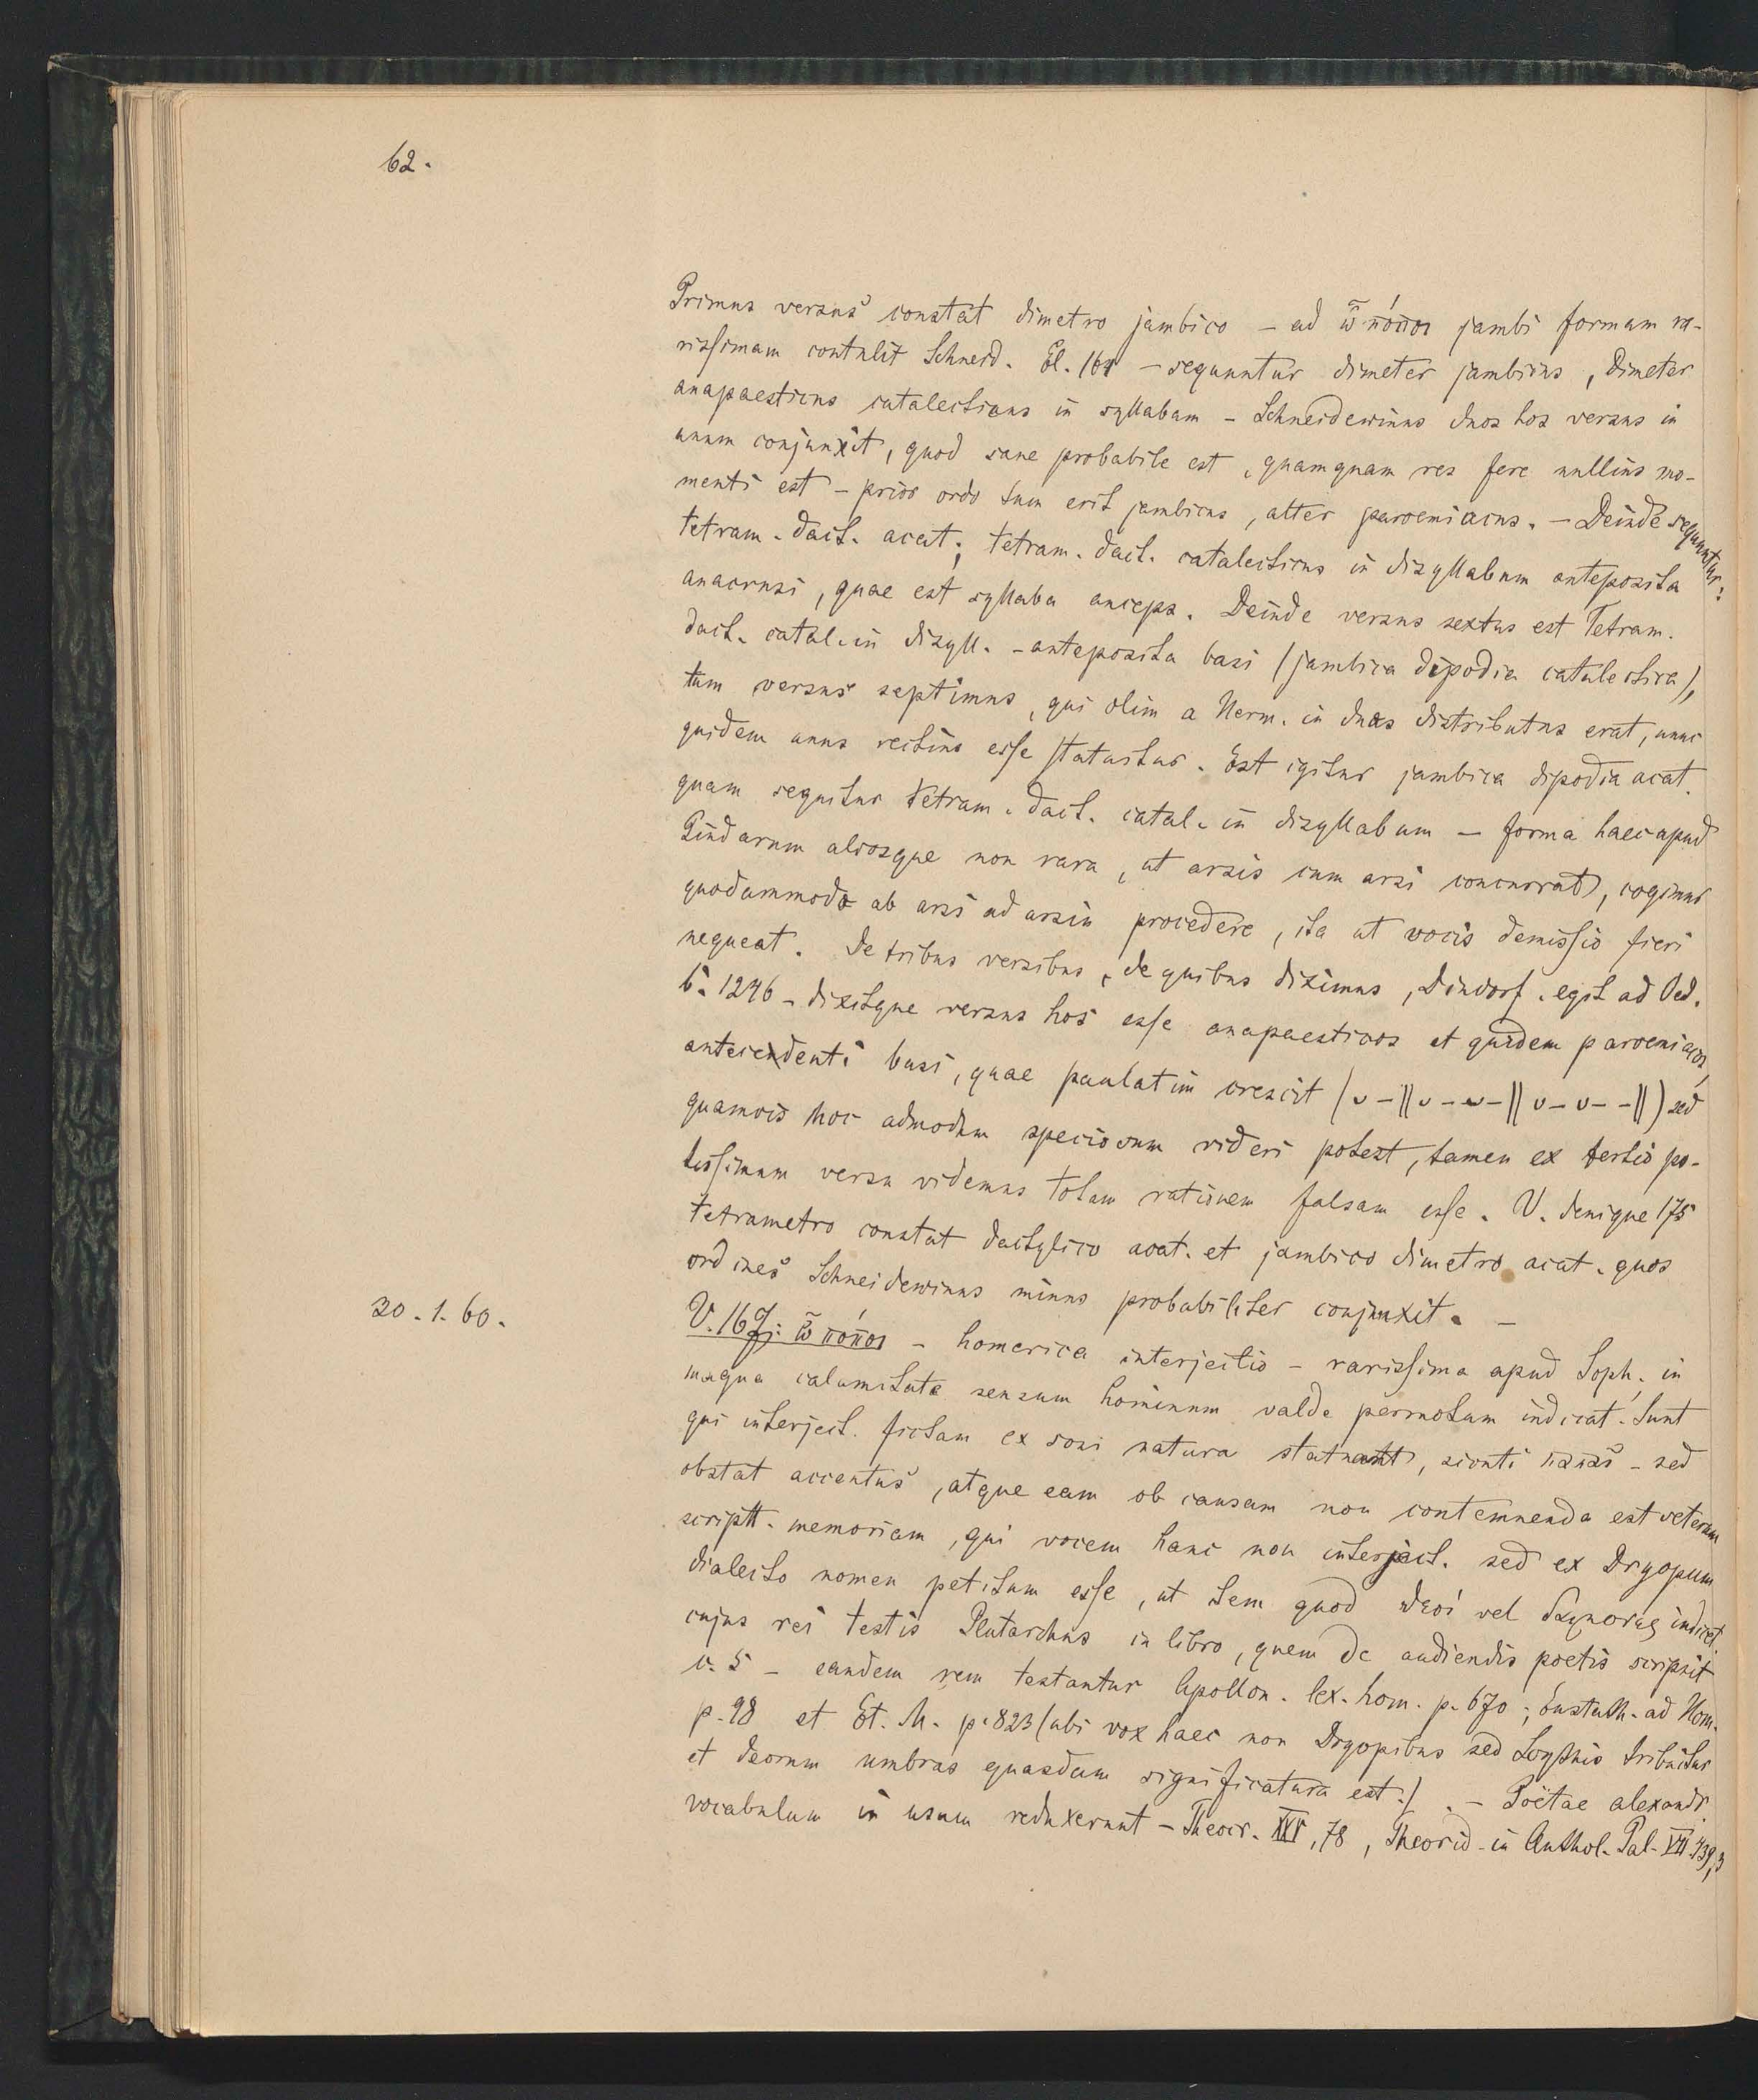 62.
Primus versus constat dimetro jambico – ad ὦ πόποι jambi formam ra-
rissimam contulit Schneid. El. 161 – sequuntur dimeter jambicus, dimeter
anapaesticus catalecticus in syllabam – Schneidewinus duos hos versus in
unum conjunxit, quod sane probabile est, quamquam res fere nullius mo-
menti est – prior ordo tum erit jambicus, alter paroemiacus. – Deinde sequuntur:
tetram. dact. acat.; tetram. dact. catalecticus in disyllabum anteposita
anacrusi, quae est syllaba anceps. Deinde versus sextus est Tetram.
dact. catal. in disyll. – anteposita basi (jambica dipodia catalectica),
tum versus septimus, qui olim a Herm. in duas distributus erat, nunc
quidem unus rectius esse statuitur. Est igitur jambica dipodia acat.
quam sequitur tetram. dact. catal. in disyllabum – forma haec apud
Pindarum aliosque non rara, ut arsis cum arsi concurrat, cogimur
quodammodo ab arsi ad arsin procedere, ita ut vocis demissio fieri
nequeat. De tribus versibus, de quibus diximus, Dindorf. egit ad Oed.
C. 1246 – dixitque versus hos esse anapaesticos et quidem paroemiacos,
antecedenti basi, quae paulatim crescit (∪–||∪–∪–||∪–∪– –||) sed
quamvis hoc admodum speciosum videri potest, tamen ex tertio po-
tissimum versu videmus totam rationem falsam esse. V. denique 175
tetrametro constat dactylico acat. et jambico dimetro acat. quos
ordines Schneidewinus minus probabiliter conjunxit. –
30. 1. 60.
V. 167: ὦ πόποι – homerica interjectio – rarissima apud Soph., in
magna calamitate sensum hominum valde permotum indicat. Sunt
qui interject. fictam ex soni natura statuant, sicuti παπαῖ – sed
obstat accentus, atque eam ob causam non contemnenda est veterum
scriptt. memoriam, qui vocem hanc non interject. sed ex Dryopum
dialecto nomen petitum esse, ut tem quod θεοί vel δαίμονες indicet.
cujus rei testis Plutarchus in libro, quem de audiendis poetis scripsit
c. 5 – eandem rem testantur Apollon. lex. hom. p. 670; Eustath. ad Hom.
p. 98 et Et. M. p. 823 (ubi vox haec non Dryopibus sed Scythis tribuitur
et deorum umbras quasdam significatura est.) . – Poëtae alexandr.
vocabulum in usum reduxerunt – Theocr. XV, 78, Theorid. in Anthol. Pal. VII 439, 3